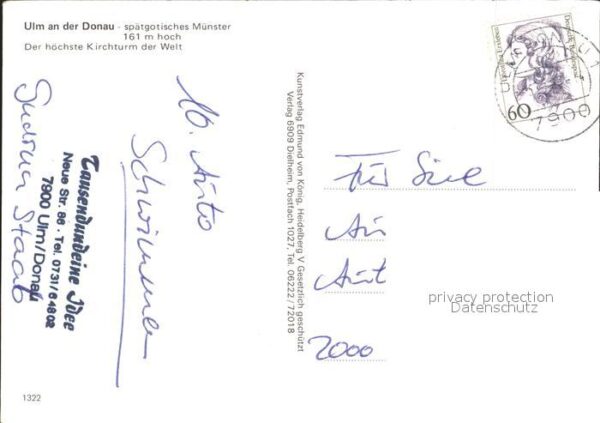 Ulm an der Donau - spätgotisches Münster
161 m hoch
Der höchste Kirchturm der Welt
10. Auto
Schwimmen
Tausendundeine Idee
Neue Str. 86 · Tel. 0731/64802
7900 Ulm/Donau
Gudrun Staab
Kunstverlag Edmund von König, Heidelberg V Gesetzlich geschützt
Verlag 6909 Dielheim, Postfach 1027, Tel. 06222/72018
Deutsche Bundespost
60
7900
Für Sie
2000
privacy protection
Datenschutz
1322